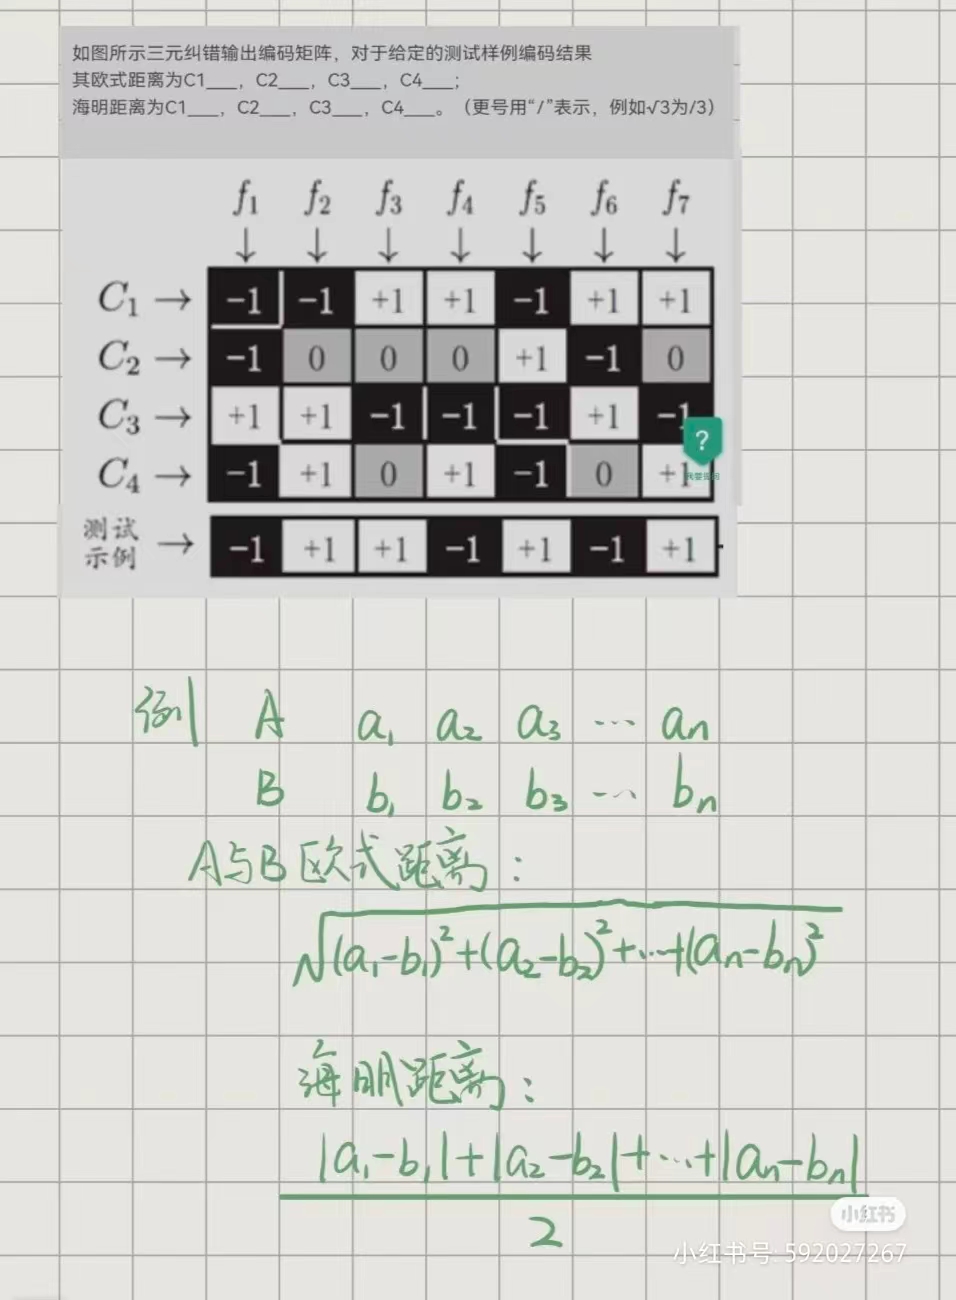 如图所示三元纠错输出编码矩阵，对于给定的测试样例编码结果
其欧式距离为C1___，C2___，C3___，C4___；
海明距离为C1___，C2___，C3___，C4___。（更号用“/”表示，例如√3为/3）
f₁ f₂ f₃ f₄ f₅ f₆ f₇
↓ ↓ ↓ ↓ ↓ ↓ ↓
C₁ → −1 −1 +1 +1 −1 +1 +1
C₂ → −1 0 0 0 +1 −1 0
C₃ → +1 +1 −1 −1 −1 +1 −1
?
C₄ → −1 +1 0 +1 −1 0 +1
测试
示例 → −1 +1 +1 −1 +1 −1 +1
例 A a₁ a₂ a₃ … aₙ
B b₁ b₂ b₃ … bₙ
A与B欧式距离：
√(a₁-b₁)²+(a₂-b₂)²+…+(aₙ-bₙ)²
海明距离：
|a₁-b₁|+|a₂-b₂|+…+|aₙ-bₙ|
2
小红书
小红书号: 592027267